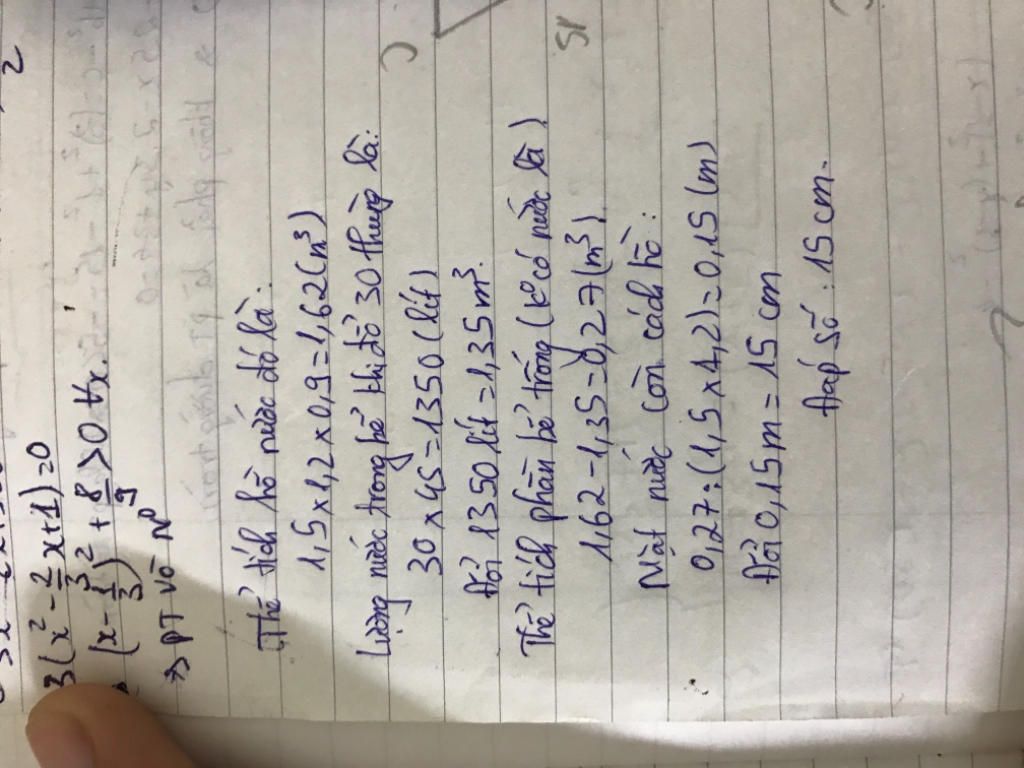 3(x² - 2/3x + 1) = 0
(x - 1/3)² + 8/9 > 0 ∀x.
→ PT vô N⁰
Thể tích hồ nước đó là:
1,5 x 1,2 x 0,9 = 1,62 (m³)
Lượng nước trong bể khi đổ 30 thùng là:
30 x 45 = 1350 (lít)
Đổi 1350 lít = 1,35 m³.
Thể tích phần bể trống (k⁰ có nước là)
1,62 - 1,35 = 0,27 (m³)
Mặt nước còn cách hồ:
0,27 : (1,5 x 1,2) = 0,15 (m)
Đổi 0,15m = 15 cm
Đáp số: 15 cm.